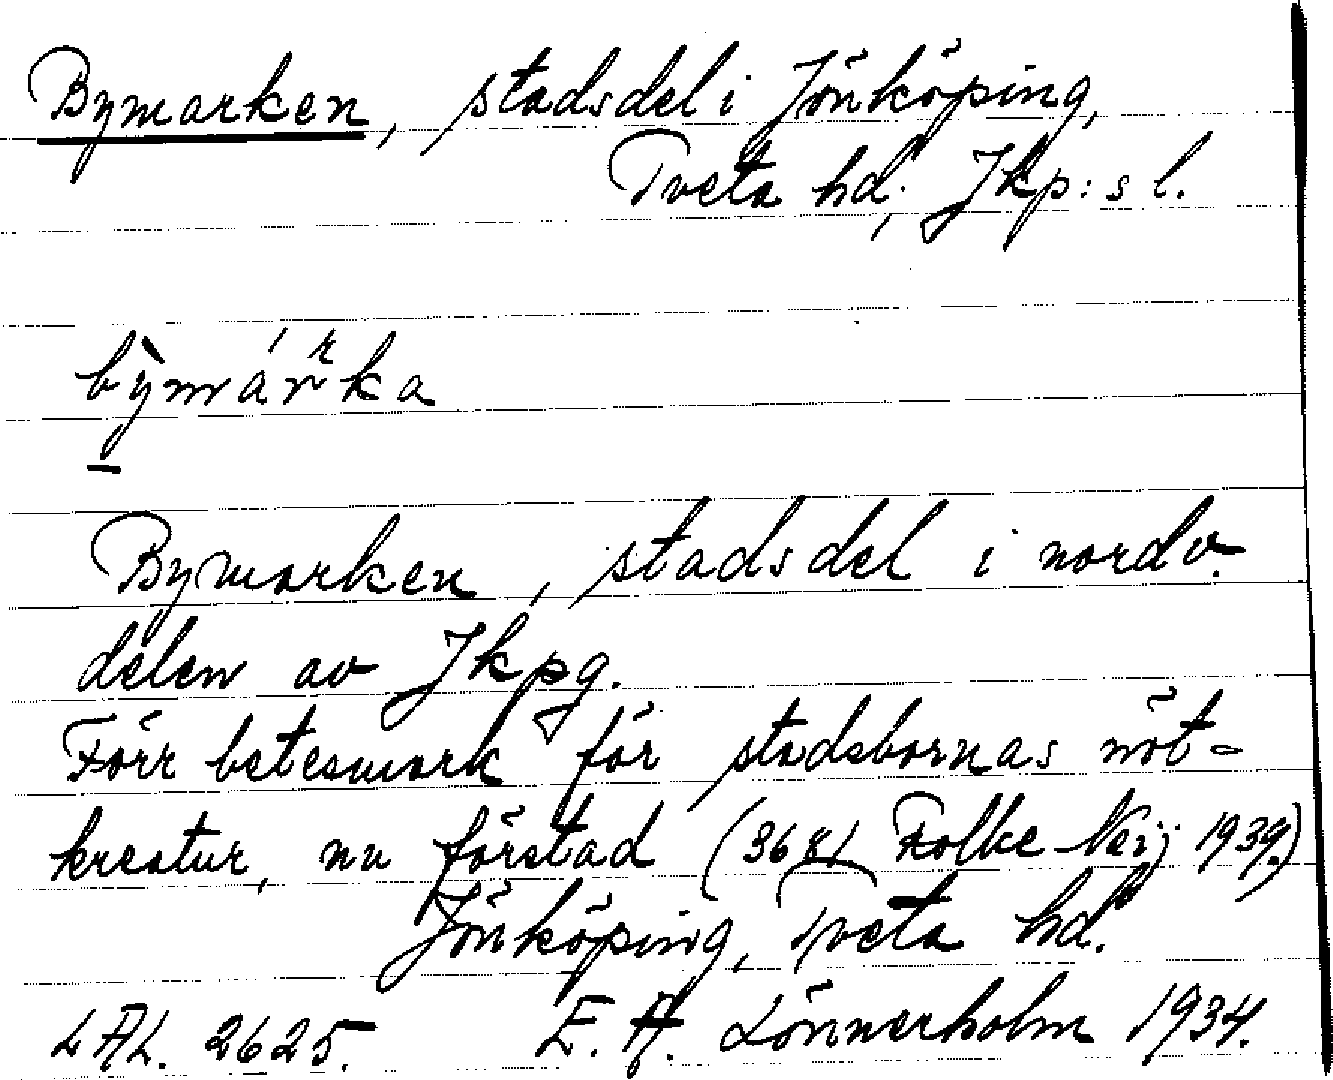 Bymarken, stadsdel i Jönköping,
Tveta hd, Jkp:s l.
bỳmárka
Bymarken, stadsdel i nordv.
delen av Jkpg.
Förr betesmark för stadsbornas nöt-
kreatur, nu förstad (3681 Folke Neij 1939.)
Jönköping, Tveta hd.
LAL. 2625. E. A. Lönnerholm 1934.